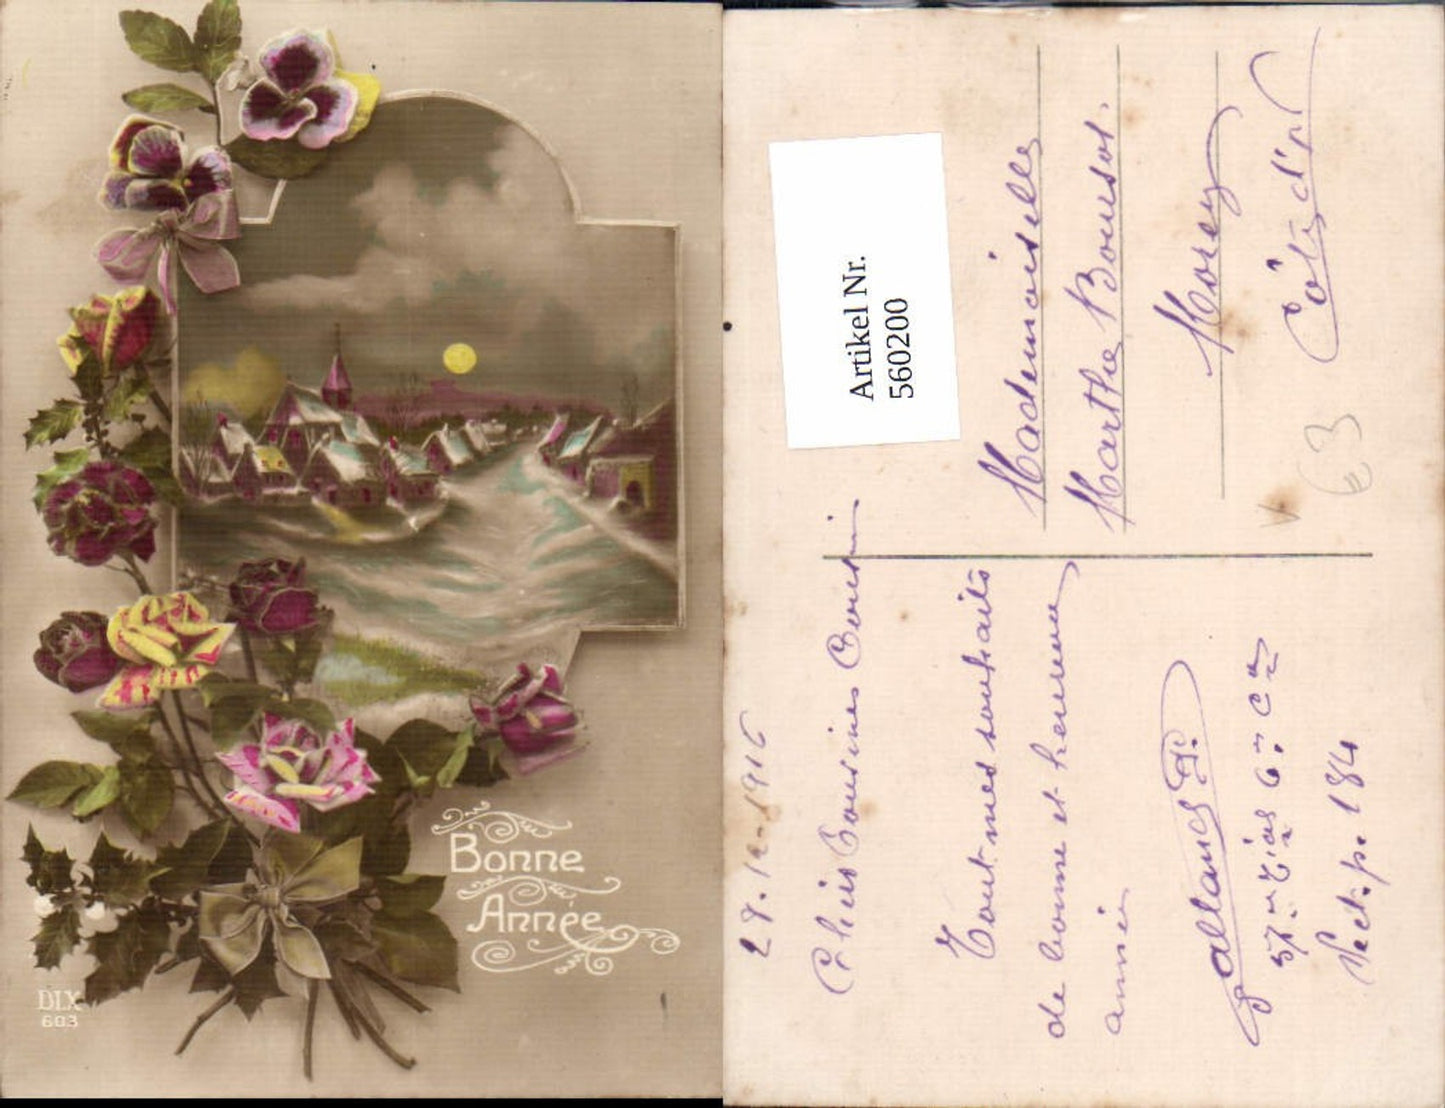 Bonne
Année
DIX
603
Artikel Nr.
560200
Mademoiselle
Marthe Boursot.
Morey
Côte d'or
€3
28-12-1916
Tout mes souhaits
de bonne et heureuse
année
Galland P.
57me 6me Cie
Sect. p. 184